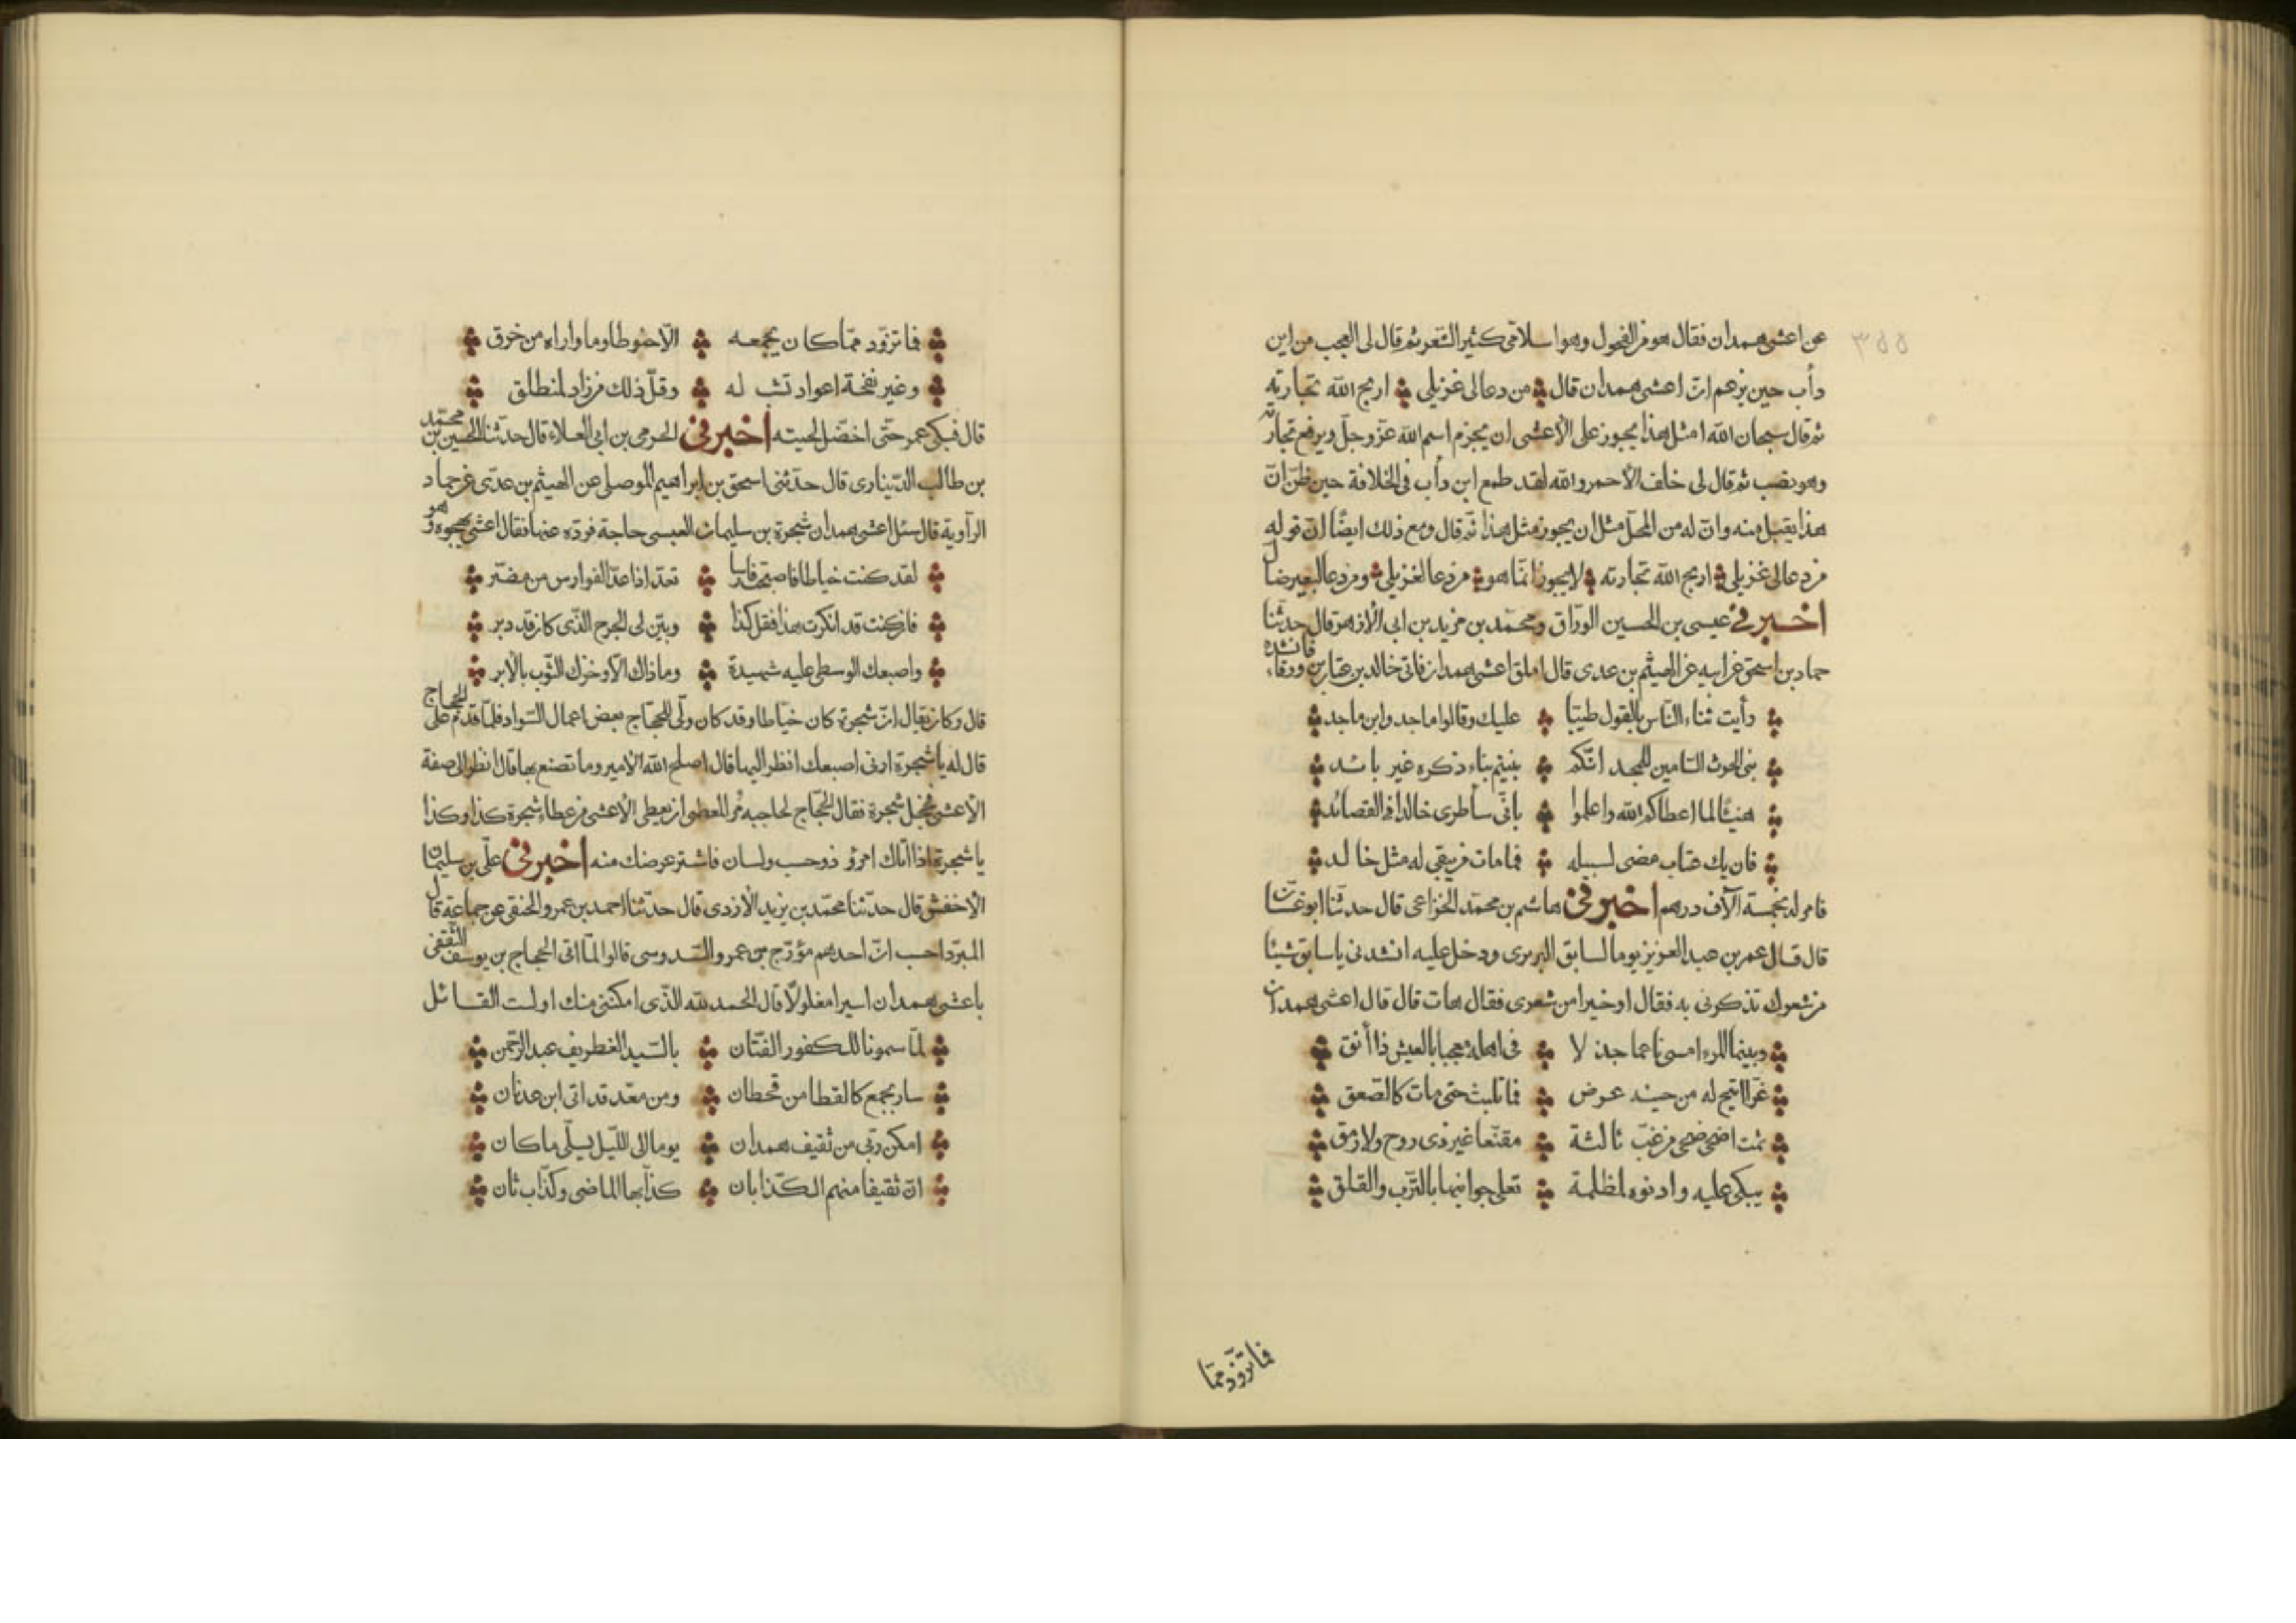 عن اعشى همدان فقال هو من الفحول وهو اسلامى كثير الشعر ثم قال لى العجب من ابن
دأب حين يزعم ان اعشى همدان قال من دعا لى غزيلى اربح الله تجارته
ثم قال سبحان الله امثل هذا يجوز على الأعشى ان يجزم اسم الله عز وجل ويرفع تجارته
وهو نصب ثم قال لى خلف الأحمر والله لقد طمع ابن دأب فى الخلافة حين ظن ان
هذا يقبل منه وان له من المحل مثل ان يجوز مثل هذا ثم قال ومع ذلك ايضا ان قوله
من دعا لى غزيلى اربح الله تجارته لا يجوز انما هو من دعا لغزيلى ومن دعا لبعير ضال
اخبرنى عيسى بن الحسين الوراق ومحمد بن مزيد بن ابى الأزهر قال حدثنا
حماد بن اسحق عن ابيه عن الهيثم بن عدى قال املق اعشى همدان فاتى خالد بن عتاب بن ورقاء فانشده
رأيت ثناء الناس بالقول طيبا عليك وقالوا ماجد وابن ماجد
بنى الحرث السامين للمجد انكم بنيتم بناء ذكره غير بائد
هنيئا لما اعطاكم الله واعلموا بانى سأطرى خالدا فى القصائد
فان يك عتاب مضى لسبيله فما مات من يبقى له مثل خالد
فامر له بخمسة آلاف درهم اخبرنى هاشم بن محمد الخزاعى قال حدثنا ابو غسان
قال قال عمر بن عبد العزيز يوما لسابق البربرى ودخل عليه انشدنى يا سابق شيئا
من شعرك تذكرنى به فقال او خيرا من شعرى فقال هات قال قال اعشى همدان
وبينما المرء امسى ناعما جذلا فى اهله معجبا بالعيش ذا أنق
غرا اتيح له من حينه عرض فما تلبث حتى مات كالصعق
ثمت اضحى ضحى من غب ثالثة مقنعا غير ذى روح ولا رمق
يبكى عليه وادنوه لمظلمة تعلى جوانبها بالترب والفلق
فما تزود مما
فما تزود مما كان يجمعه الا حنوطا وما واراه من خرق
وغير نفحة اعواد تشب له وقل ذلك من زاد لمنطلق
قال فبكى عمر حتى اخضل لحيته اخبرنى الحرمى بن ابى العلاء قال حدثنا الحسين بن محمد
بن طالب الدينارى قال حدثنى اسحق بن ابراهيم الموصلى عن الهيثم بن عدى عن حماد
الراوية قال سئل اعشى همدان شجرة بن سليمان العبسى حاجة فرده عنها فقال اعشى يهجوه
لقد كنت خياطا فاصبحت فارسا تعد اذا عد الفوارس من مضر
فان كنت قد انكرت هذا فقل كذا وبين لى الجرح الذى كان قد دبر
واصبعك الوسطى عليه شهيدة وما ذاك الا وخزك الثوب بالأبر
قال وكان يقال ان شجرة كان خياطا وقد كان ولى للحجاج بعض اعمال السواد فلما قدم على الحجاج
قال له يا شجرة ارنى اصبعك انظر اليها قال اصلح الله الأمير وما تصنع بها قال انظر الى صفة
الأعشى فخجل شجرة فقال الحجاج لحاجبه مر المعطى ان يعطى الأعشى من عطاء شجرة كذا وكذا
يا شجرة اذا اتاك امرؤ ذو حسب ولسان فاشتر عرضك منه اخبرنى على بن سليمان
الأخفش قال حدثنا محمد بن يزيد الأزدى قال حدثنا احمد بن عمرو الحنفى عن جماعة قال
المبرد احسب ان احدهم مؤرج بن عمرو السدوسى قالوا لما اتى الحجاج بن يوسف الثقفى
باعشى همدان اسيرا مغلولا قال الحمد لله الذى امكننى منك اولست القائل
لما سمونا للكفور الفتان بالسيد الغطريف عبد الرحمن
سار بجمع كالقطا من قحطان ومن معد قد اتى ابن عدنان
امكن ربى من ثقيف همدان يوما الى الليل يسلى ما كان
ان ثقيفا منهم الكذابان كذابها الماضى وكذاب ثان